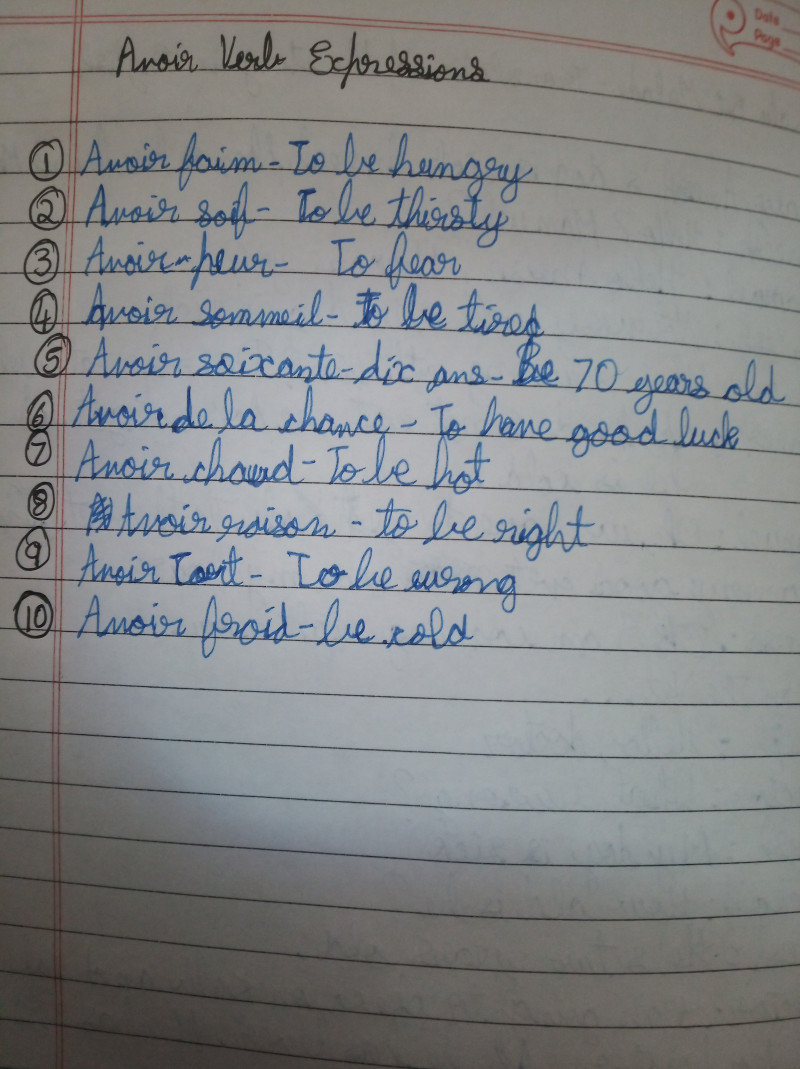 Date
Page
Avoir Verb Expressions
① Avoir faim - To be hungry
② Avoir soif - To be thirsty
③ Avoir - peur - To fear
④ Avoir sommeil - To be tired
⑤ Avoir soixante-dix ans - Be 70 years old
⑥ Avoir de la chance - To have good luck
⑦ Avoir chaud - To be hot
⑧ Avoir raison - to be right
⑨ Avoir Tort - To be wrong
⑩ Avoir froid - be cold